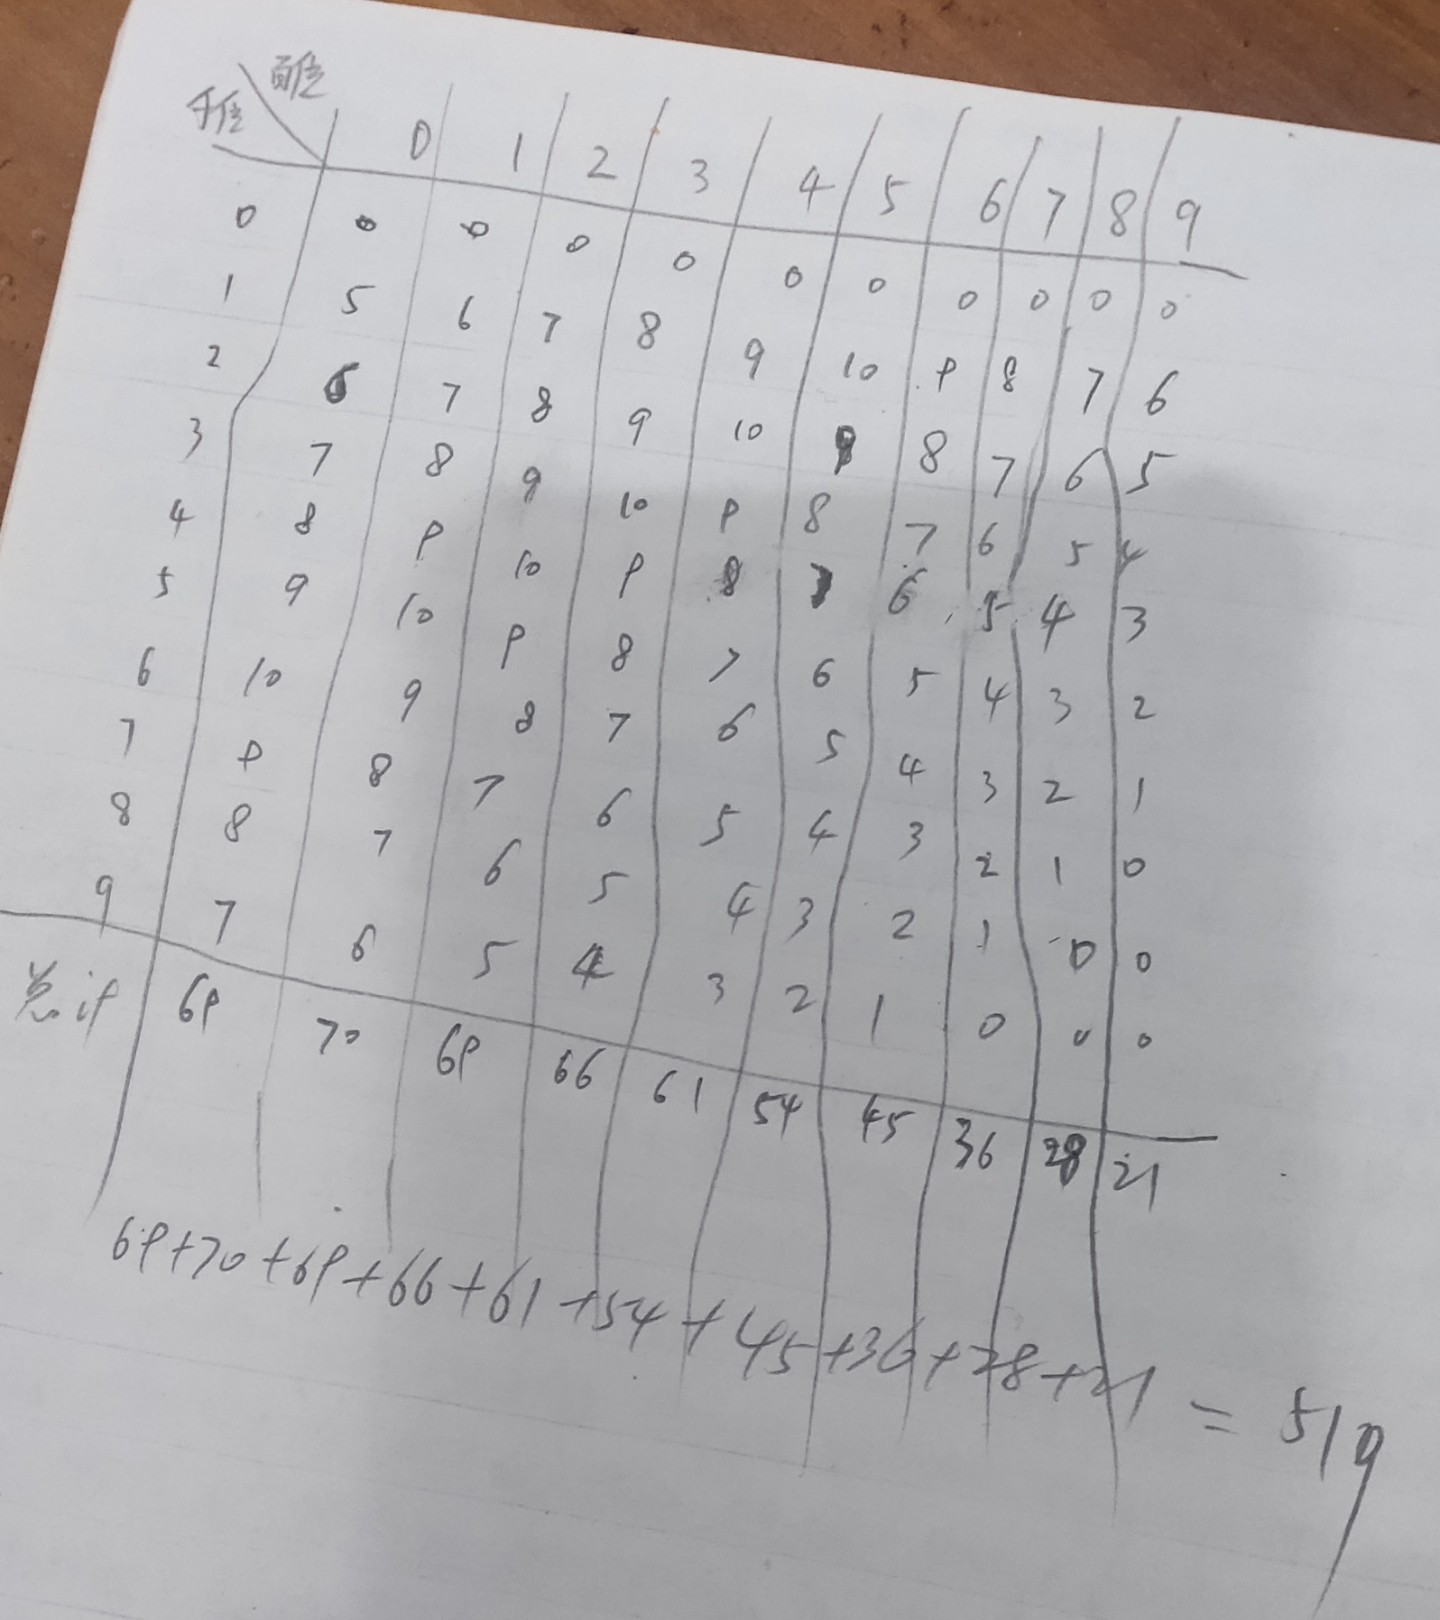 百位
千位 0 1 2 3 4 5 6 7 8 9
0 0 0 0 0 0 0 0 0 0 0
1 5 6 7 8 9 10 9 8 7 6
2 6 7 8 9 10 9 8 7 6 5
3 7 8 9 10 9 8 7 6 5 4
4 8 9 10 9 8 7 6 5 4 3
5 9 10 9 8 7 6 5 4 3 2
6 10 9 8 7 6 5 4 3 2 1
7 9 8 7 6 5 4 3 2 1 0
8 8 7 6 5 4 3 2 1 0 0
9 7 6 5 4 3 2 1 0 0 0
总计 69 70 69 66 61 54 45 36 28 21
69+70+69+66+61+54+45+36+28+21=519